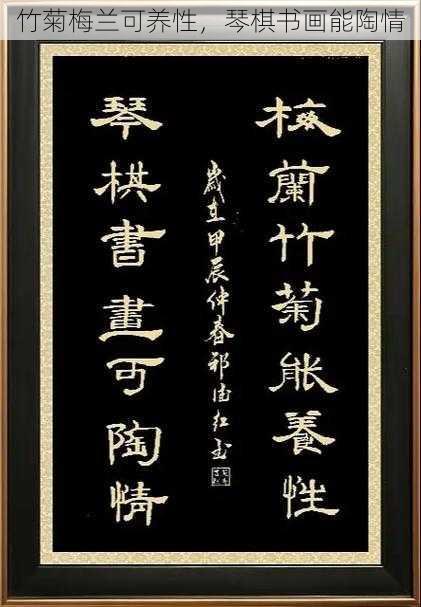 竹菊梅兰可养性，琴棋书画能陶情
梅蘭竹菊能養性
歲在甲辰仲春
琴棋書畫可陶情